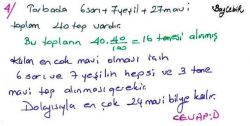 4/ Torbada 6 sarı + 7 yeşil + 27 mavi
toplam 40 top vardır.
Bu topların 40.40/100 = 16 tanesi alınmış
Kalan en çok mavi olması için
6 sarı ve 7 yeşilin hepsi ve 3 tane
mavi top alınması gerekir.
Dolayısıyla en çok 24 mavi bilye kalır.
CEVAP: D